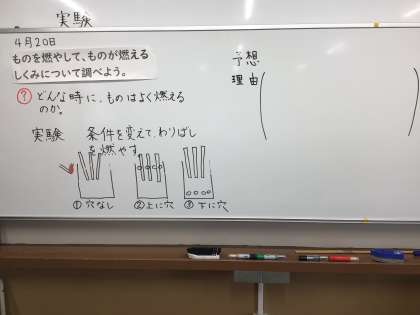 実験
4月20日
ものを燃やして、ものが燃える
しくみについて調べよう。
? どんな時に、ものはよく燃える
のか。
実験 条件を変えて、わりばし
を燃やす。
①穴なし ②上に穴 ③下に穴
予想
理由( )